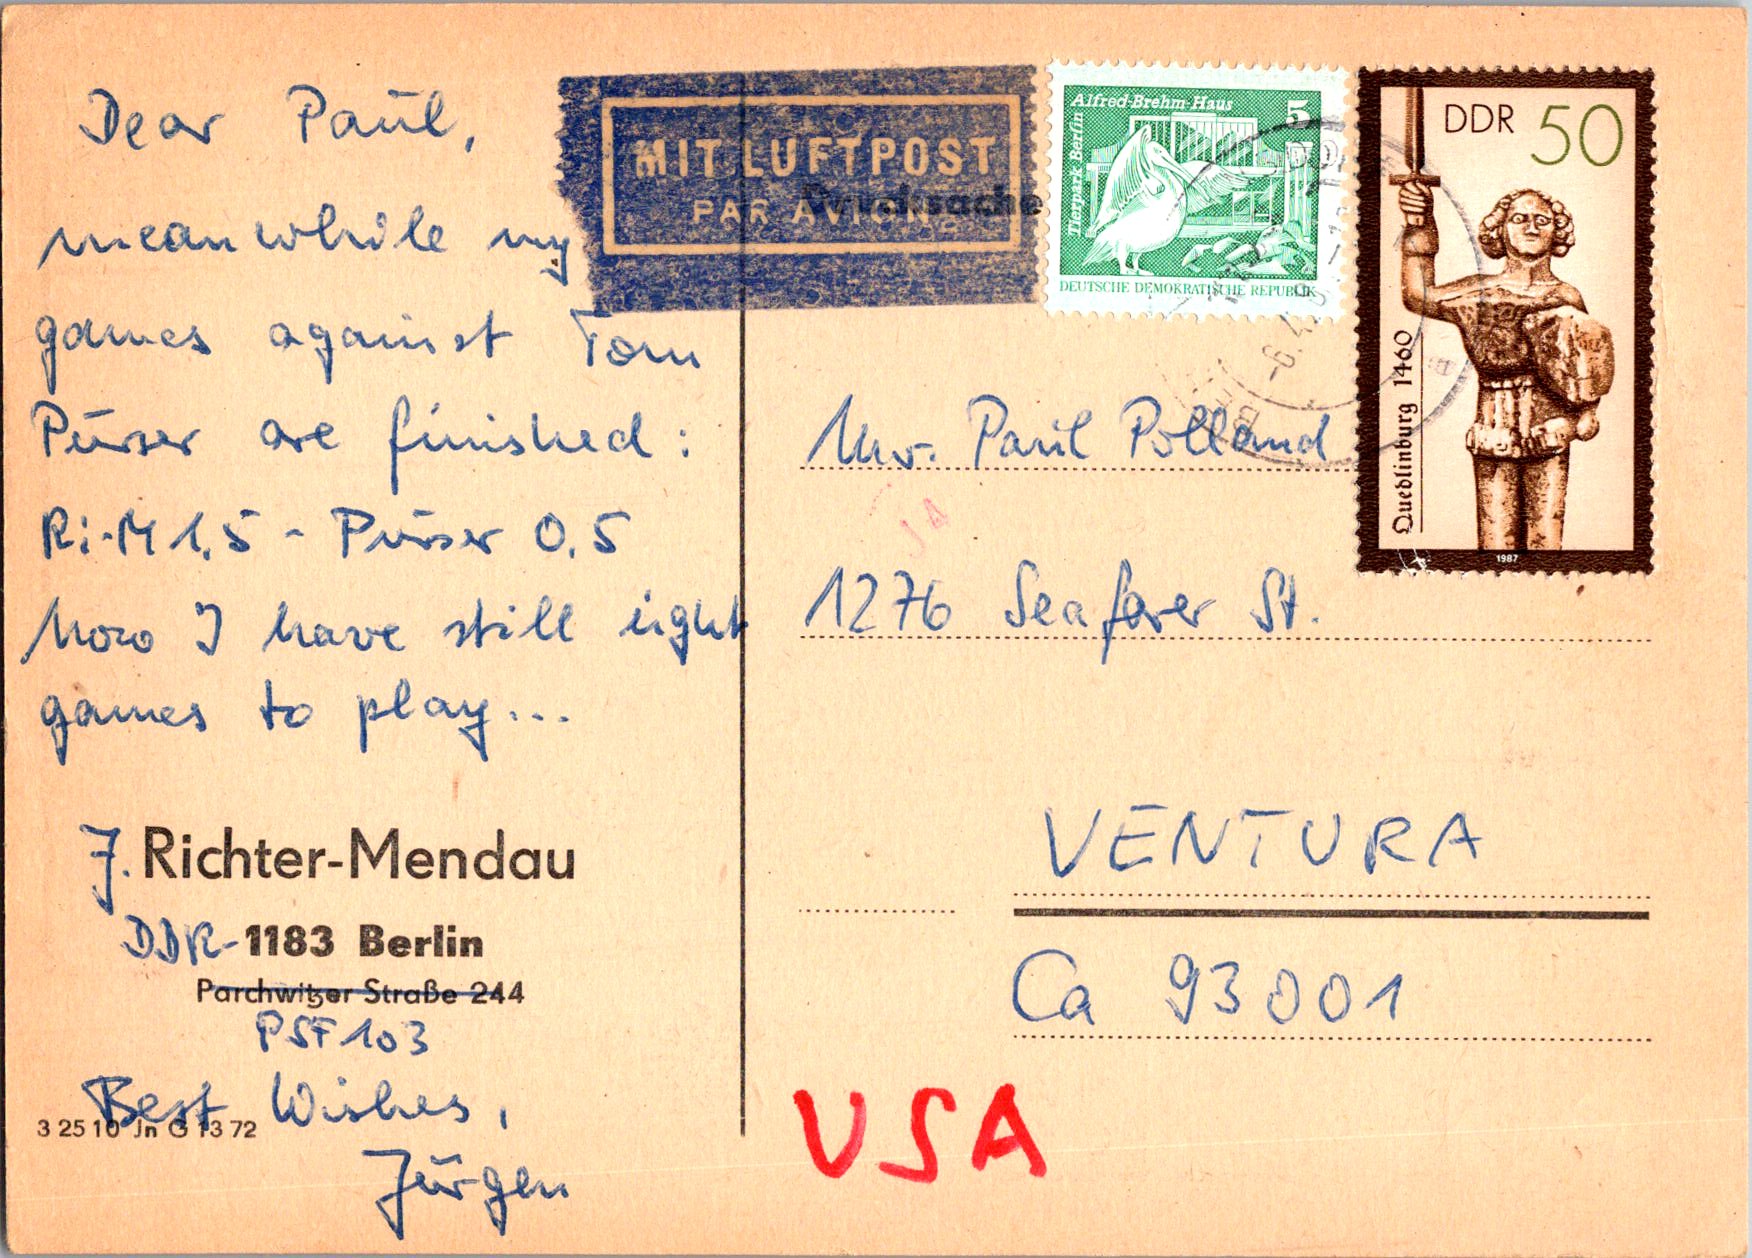 Dear Paul,
meanwhile my
games against Tom
Pürser are finished:
Ri-M 1,5 - Pürser 0,5
Now I have still eight
games to play...
J. Richter-Mendau
DDR-1183 Berlin
Parchwitzer Straße 244
PSF 103
Best Wishes,
Jürgen
3 25 10 Jn G 13 72
MIT LUFTPOST
PAR AVION
Drucksache
Alfred-Brehm-Haus
5
Tierpark Berlin
DEUTSCHE DEMOKRATISCHE REPUBLIK
DDR 50
Quedlinburg 1460
1987
Mr. Paul Polland
1276 Seafarer St.
VENTURA
Ca 93001
USA